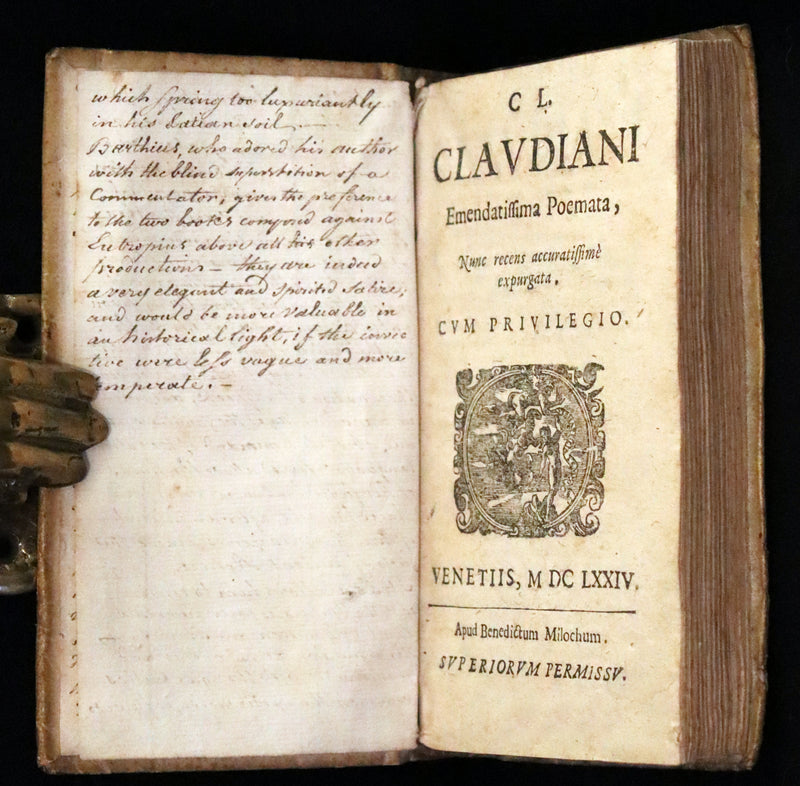 which spring too luxuriantly
in his Latian soil —
Barthius, who adored his author
with the blind superstition of a
Commentator, gives the preference
to the two books composed against
Eutropius above all his other
productions — they are indeed
a very elegant and spirited Satire,
and would be more valuable in
an historical light, if the invec
tive were less vague and more
temperate. —
C L.
CLAVDIANI
Emendatissima Poemata,
Nunc recens accuratissimè
expurgata.
CVM PRIVILEGIO.
VENETIIS, M DC LXXIV.
Apud Benedictum Milochum.
SVPERIORVM PERMISSV.